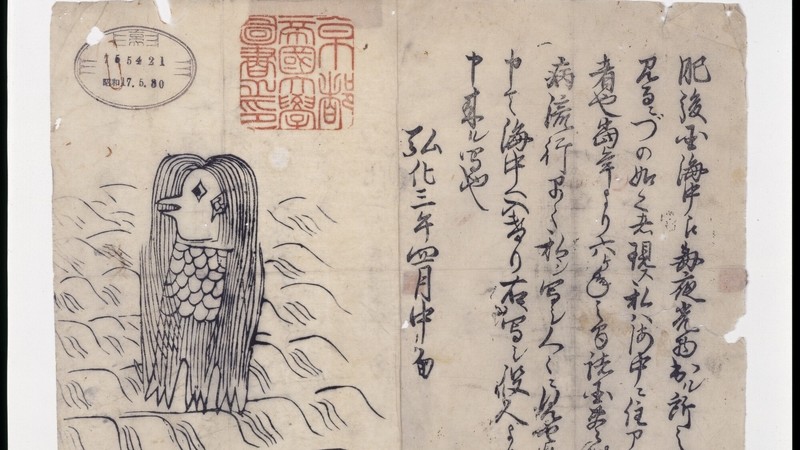 肥後国海中え毎夜光物出ル所之
見るニづの如く者現ス私ハ海中ニ住ア
者也當年より六ヶ年之間諸国豊作
病流行早々私ヲ写シ人々ニ見せ
申て海中へ入けり右写シ役人より
申来ル写也
弘化三年四月中旬
京都
帝國大學
圖書之印
155421
昭和17.5.30